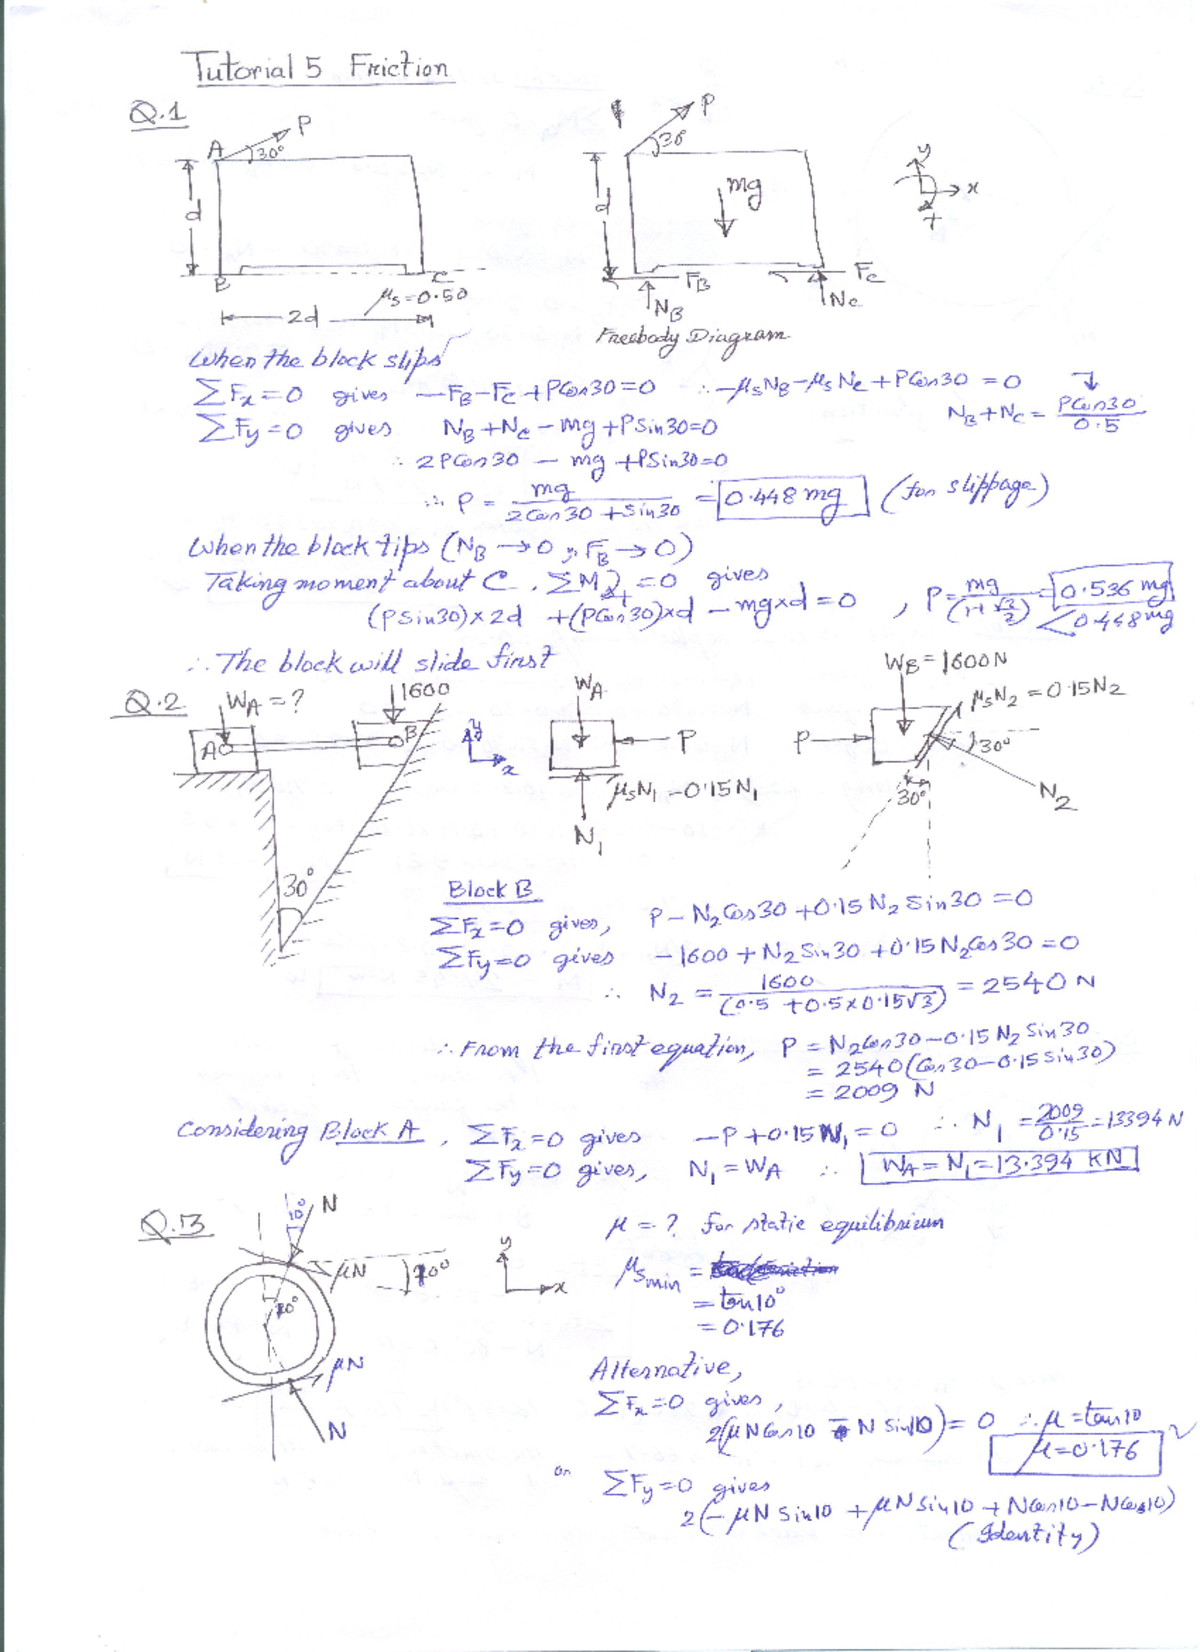 Tutorial 5 Friction
Q.1
A 30° P
d
B C
μs=0.50
2d
P
30
mg
d
FB Fc
NB Nc
Freebody Diagram
y
x
+
When the block slips
ΣFx=0 gives -FB-Fc+PCos30=0 ∴ -μsNB-μsNc+PCos30 = 0
NB+Nc = PCos30/0.5
ΣFy=0 gives NB+Nc-mg+PSin30=0
∴ 2PCos30 - mg +PSin30=0
∴ P = mg/(2Cos30+Sin30) = 0.448 mg (for slippage)
When the block tips (NB→0, FB→0)
Taking moment about C, ΣM+=0 gives
(PSin30)×2d +(PCos30)×d - mg×d=0, P=mg/(1+√3/2)=0.536 mg
<0.448mg
∴ The block will slide first
Q.2 WA=? 1600
A B
30°
y
x
WA
P
μsN1=0.15N1
N1
WB=1600N
μsN2=0.15N2
P
30°
30°
N2
Block B
ΣFx=0 gives, P-N2Cos30+0.15N2Sin30=0
ΣFy=0 gives -1600+N2Sin30+0.15N2Cos30=0
∴ N2 = 1600/(0.5+0.5×0.15√3) = 2540 N
∴ From the first equation, P = N2Cos30-0.15N2Sin30
= 2540(Cos30-0.15Sin30)
= 2009 N
Considering Block A, ΣFx=0 gives -P+0.15N1=0 ∴ N1 = 2009/0.15=13394N
ΣFy=0 gives, N1=WA ∴ WA=N1=13.394 KN
Q.3
10° N
μN 10°
10°
μN
N
y
x
μ=? for static equilibrium
μsmin =
= tan10°
= 0.176
Alternative,
ΣFx=0 gives,
2(μNCos10 - N Sin10)=0 ∴ μ=tan10
μ=0.176
or ΣFy=0 gives
2(-μNSin10+μNSin10+NCos10-NCos10)
(Identity)